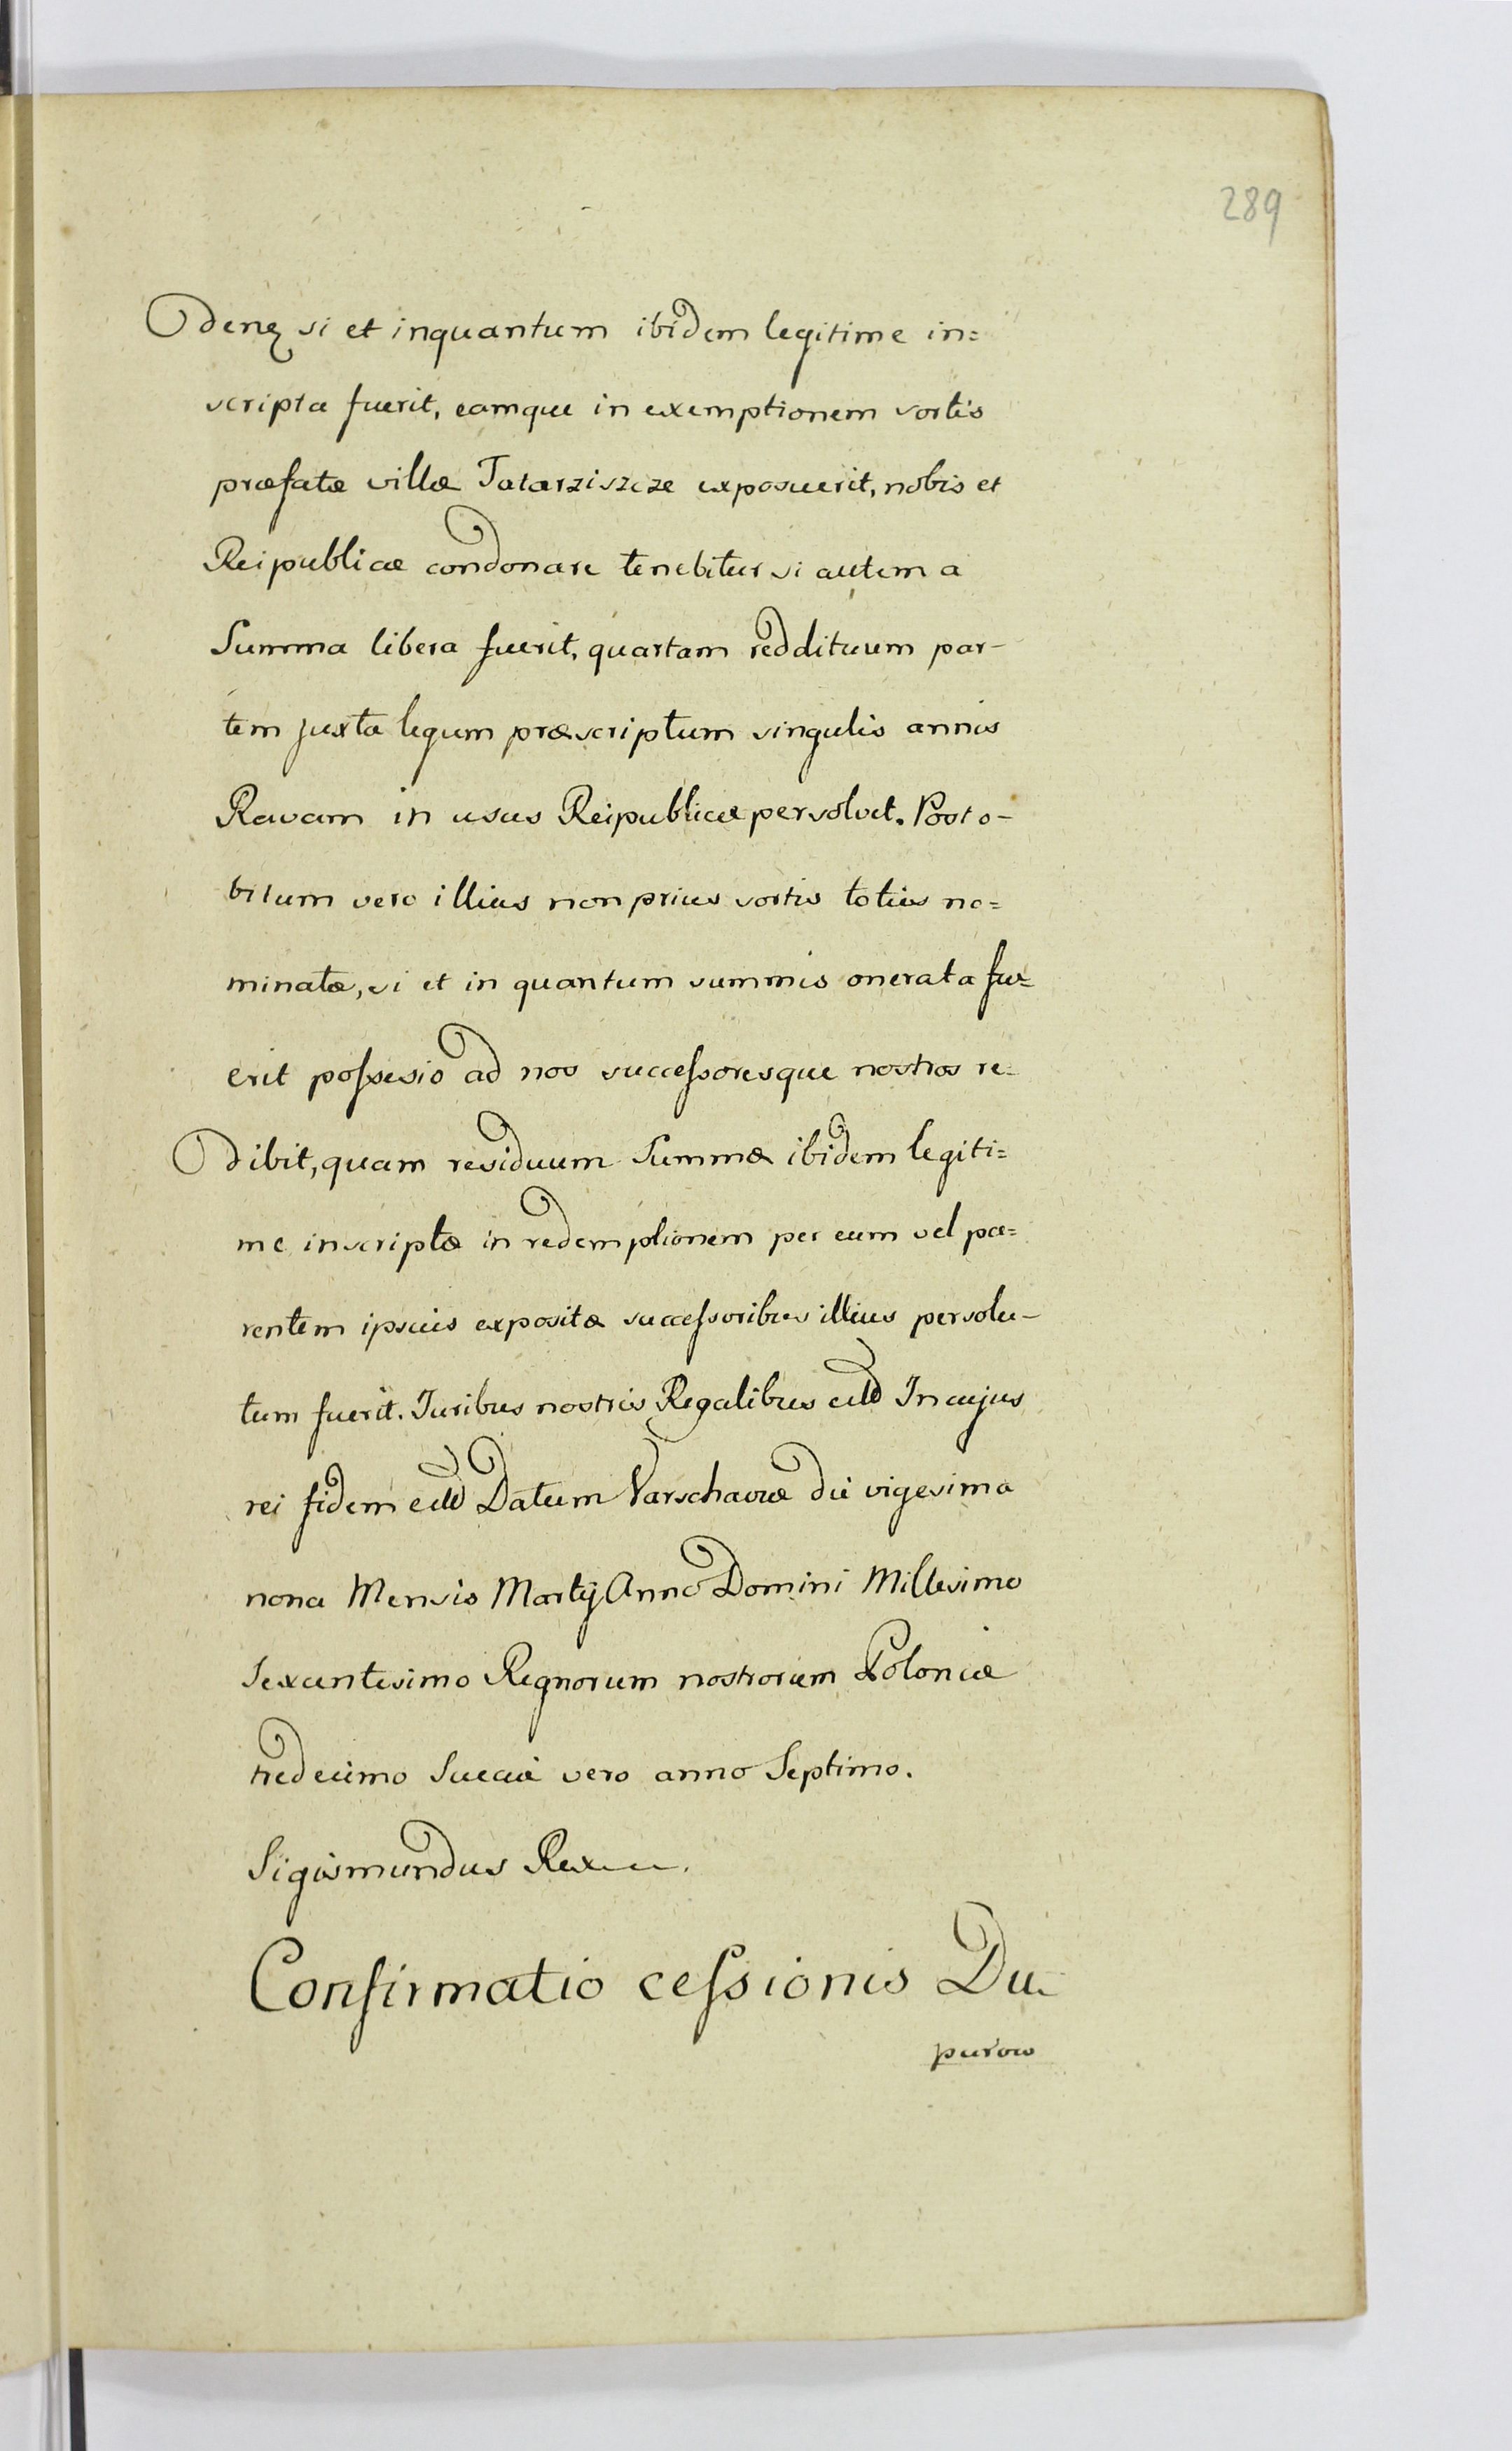 289
denq si et inquantum ibidem legitime in=
scripta fuerit, eamque in exemptionem sortis
præfatæ villæ Tatarziszcze exposuerit, nobis et
Reipublicæ condonare tenebitur si autem a
Summa libera fuerit, quartam reddituum par-
tem juxta legum præscriptum singulis annis
Ravam in usus Reipublicæ persolvet. Post o-
bitum vero illius non prius sortis totius no=
minatæ, si et in quantum summis onerata fu=
erit possesio ad nos successoresque nostros re=
dibit, quam residuum Summæ ibidem legiti=
me inscriptæ in redemptionem per eum vel pa=
rentem ipsius expositæ successoribus illius persolu-
tum fuerit. Juribus nostris Regalibus In cujus
rei fidem Datum Varschaviæ die vigesima
nona Mensis Martij Anno Domini Millesimo
Sexcentesimo Regnorum nostrorum Poloniæ
tredecimo Sueciæ vero anno Septimo.
Sigismundus Rex
Confirmatio cessionis Du=